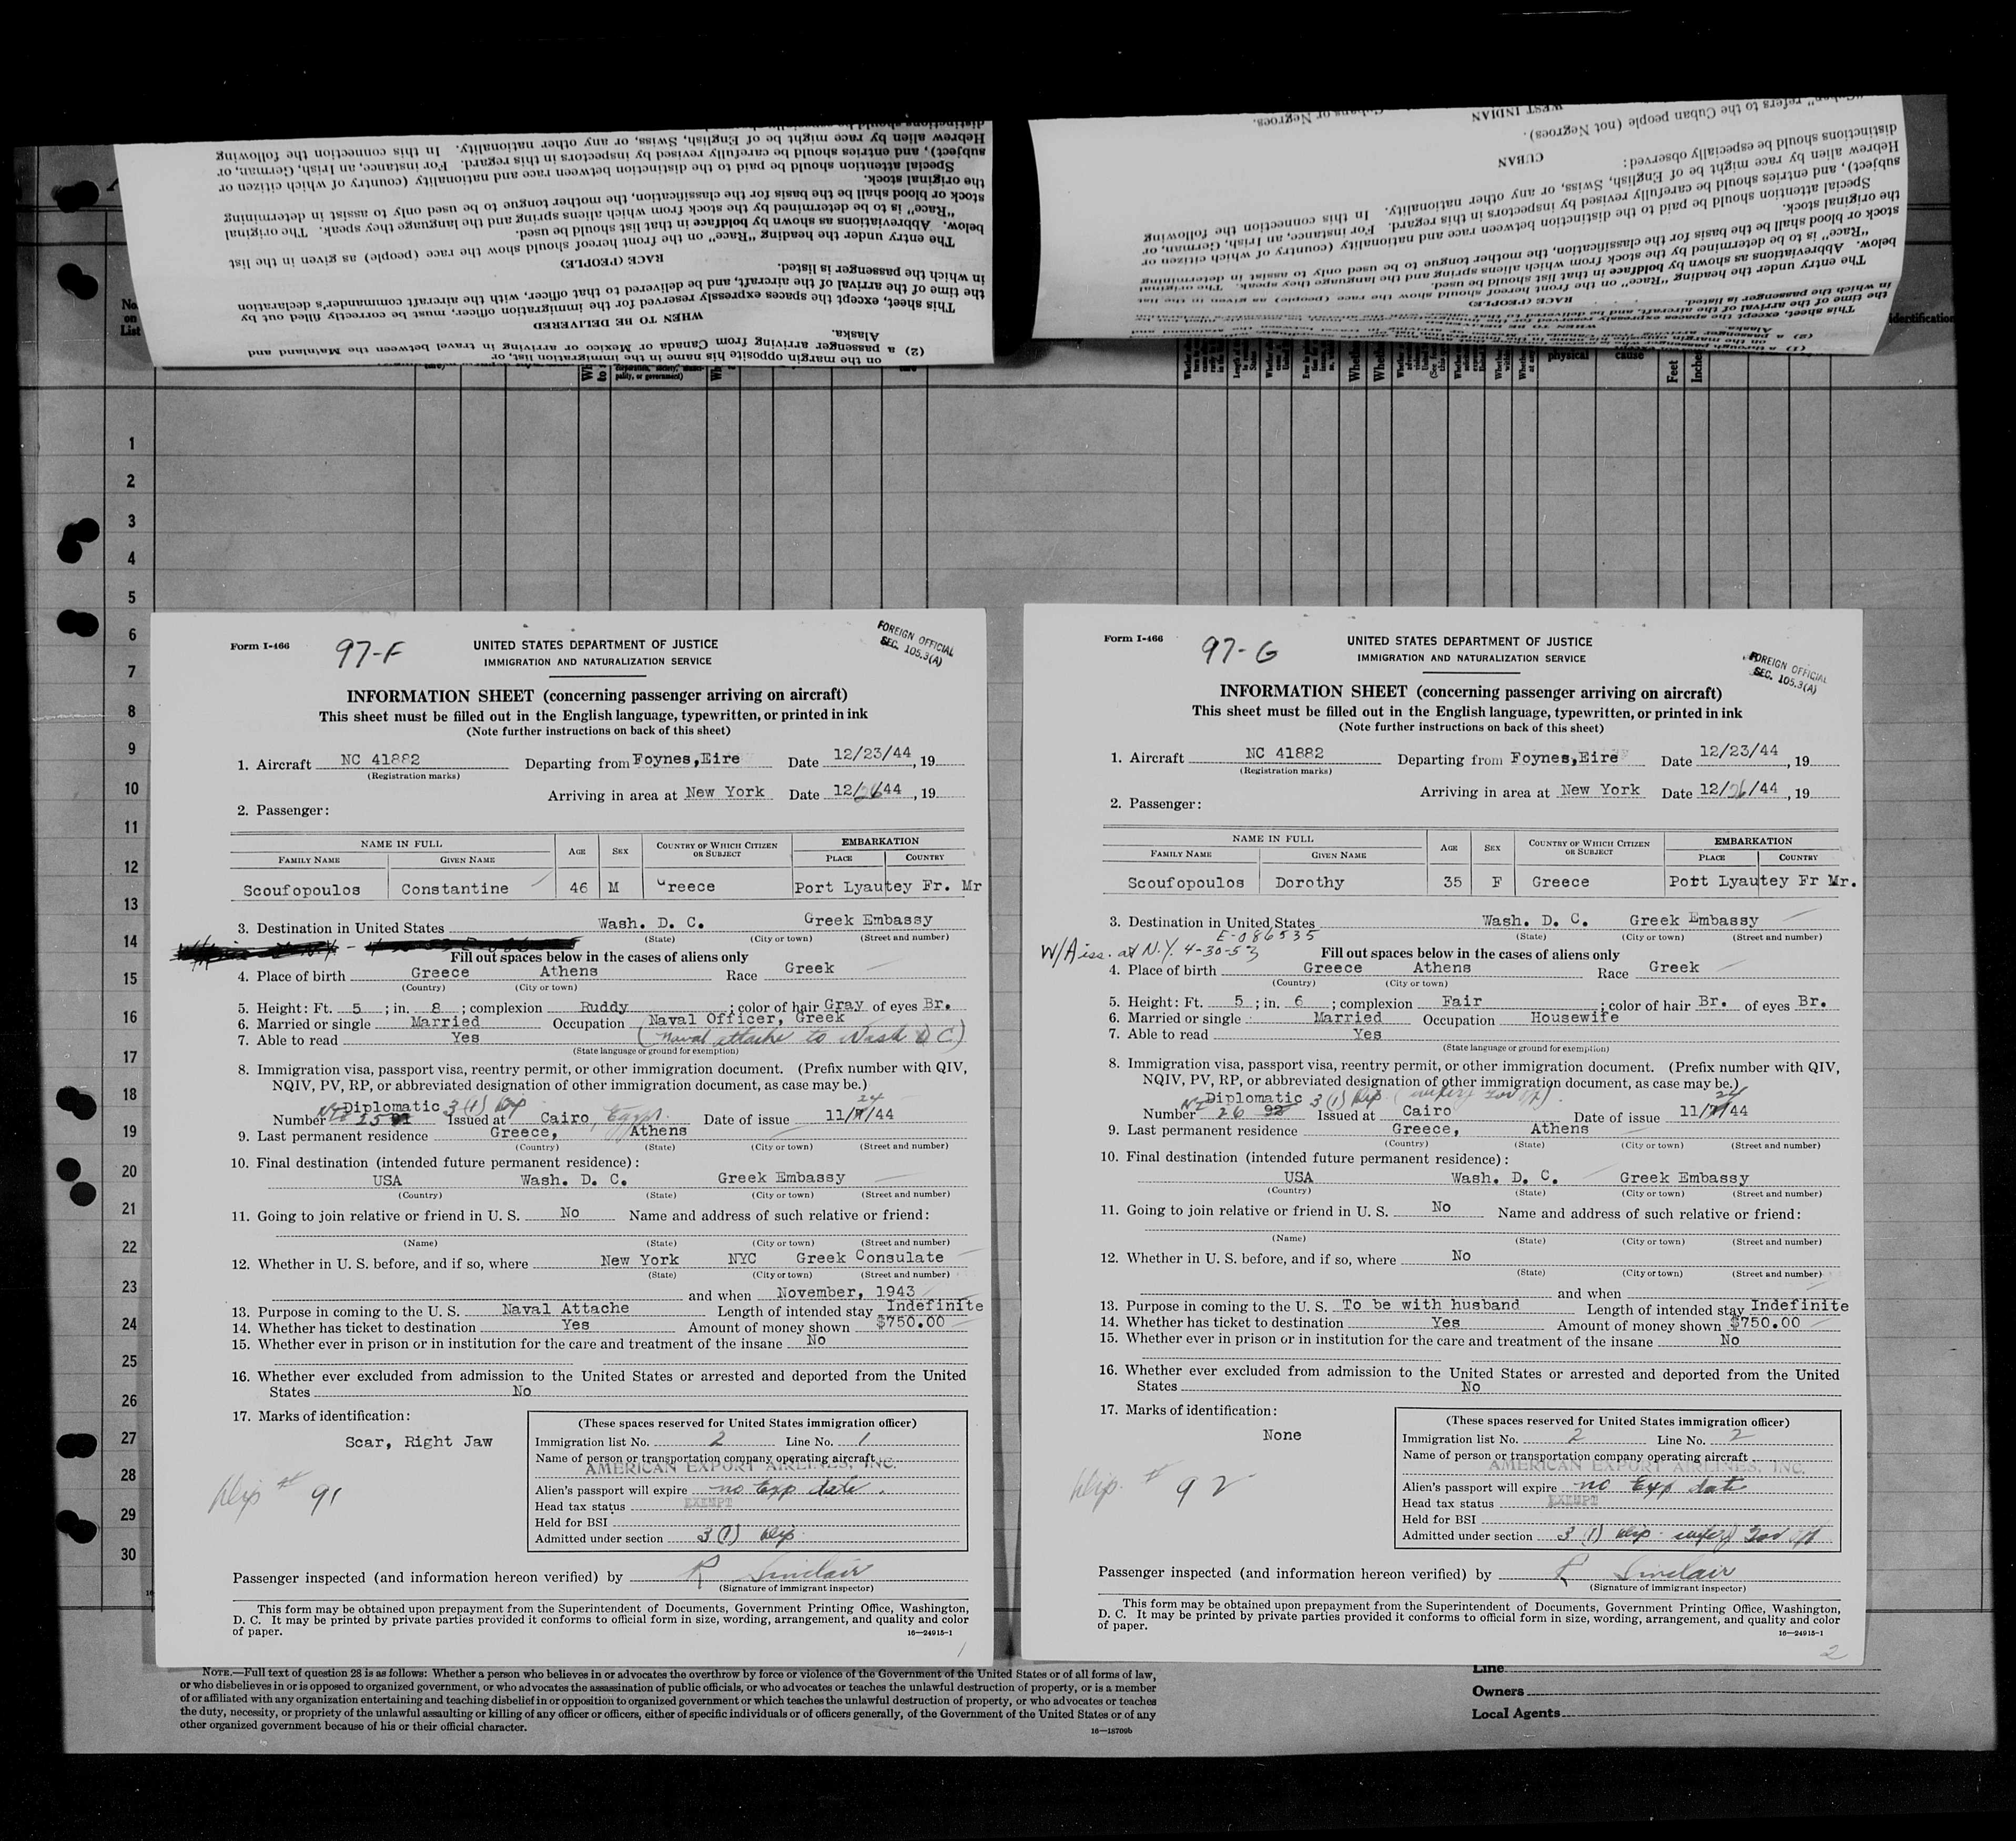 on the margin opposite his name in the immigration list, or
(2) a passenger arriving from Canada or Mexico or arriving in travel between the Mainland and
Alaska.
WHEN TO BE DELIVERED
This sheet, except the spaces expressly reserved for the immigration officer, must be correctly filled out by
the time of the arrival of the aircraft, and be delivered to that officer, with the aircraft commander's declaration
in which the passenger is listed.
RACE (PEOPLE)
The entry under the heading "Race" on the front hereof should show the race (people) as given in the list
below. Abbreviations as shown by boldface in that list should be used.
"Race" is to be determined by the stock from which aliens spring and the language they speak. The original
stock or blood shall be the basis for the classification, the mother tongue to be used only to assist in determining
the original stock.
Special attention should be paid to the distinction between race and nationality (country of which citizen or
subject), and entries should be carefully revised by inspectors in this regard. For instance, an Irish, German, or
Hebrew alien by race might be of English, Swiss, or any other nationality. In this connection the following
distinctions should be especially observed:
Alaska.
WHEN TO BE DELIVERED
This sheet, except the spaces expressly reserved for the immigration officer, must be correctly filled out by
the time of the arrival of the aircraft, and be delivered to that officer, with the aircraft commander's declaration
in which the passenger is listed.
RACE (PEOPLE)
The entry under the heading "Race" on the front hereof should show the race (people) as given in the list
below. Abbreviations as shown by boldface in that list should be used.
"Race" is to be determined by the stock from which aliens spring and the language they speak. The original
stock or blood shall be the basis for the classification, the mother tongue to be used only to assist in determining
the original stock.
Special attention should be paid to the distinction between race and nationality (country of which citizen or
subject), and entries should be carefully revised by inspectors in this regard. For instance, an Irish, German, or
Hebrew alien by race might be of English, Swiss, or any other nationality. In this connection the following
distinctions should be especially observed:
CUBAN
"Cuban" refers to the Cuban people (not Negroes).
WEST INDIAN
No.
on
List
identification
physical
cause
Feet
Inches
1
2
3
4
5
6
7
8
9
10
11
12
13
14
15
16
17
18
19
20
21
22
23
24
25
26
27
28
29
30
Form I-466
97-F
UNITED STATES DEPARTMENT OF JUSTICE
IMMIGRATION AND NATURALIZATION SERVICE
FOREIGN OFFICIAL
SEC. 105.3(A)
INFORMATION SHEET (concerning passenger arriving on aircraft)
This sheet must be filled out in the English language, typewritten, or printed in ink
(Note further instructions on back of this sheet)
1. Aircraft NC 41882 Departing from Foynes,Eire Date 12/23/44, 19
(Registration marks)
Arriving in area at New York Date 12/26/44, 19
2. Passenger:
NAME IN FULL AGE SEX COUNTRY OF WHICH CITIZEN OR SUBJECT EMBARKATION
FAMILY NAME GIVEN NAME PLACE COUNTRY
Scoufopoulos Constantine 46 M Greece Port Lyautey Fr. Mr
3. Destination in United States Wash. D. C. Greek Embassy
(State) (City or town) (Street and number)
Fill out spaces below in the cases of aliens only
4. Place of birth Greece Athens Race Greek
(Country) (City or town)
5. Height: Ft. 5; in. 8; complexion Ruddy; color of hair Gray of eyes Br.
6. Married or single Married Occupation Naval Officer, Greek
7. Able to read Yes (Naval attache to Wash D C)
(State language or ground for exemption)
8. Immigration visa, passport visa, reentry permit, or other immigration document. (Prefix number with QIV,
NQIV, PV, RP, or abbreviated designation of other immigration document, as case may be.)
Diplomatic 3(1) Dip 24
Number 25 91 Issued at Cairo, Egypt. Date of issue 11/7/44
9. Last permanent residence Greece, Athens
(Country) (State) (City or town) (Street and number)
10. Final destination (intended future permanent residence):
USA Wash. D. C. Greek Embassy
(Country) (State) (City or town) (Street and number)
11. Going to join relative or friend in U. S. No Name and address of such relative or friend:
(Name) (State) (City or town) (Street and number)
12. Whether in U. S. before, and if so, where New York NYC Greek Consulate
(State) (City or town) (Street and number)
and when November, 1943
13. Purpose in coming to the U. S. Naval Attache Length of intended stay Indefinite
14. Whether has ticket to destination Yes Amount of money shown $750.00
15. Whether ever in prison or in institution for the care and treatment of the insane No
16. Whether ever excluded from admission to the United States or arrested and deported from the United
States No
17. Marks of identification:
Scar, Right Jaw
Dip # 91
(These spaces reserved for United States immigration officer)
Immigration list No. 2 Line No. 1
Name of person or transportation company operating aircraft
AMERICAN EXPORT AIRLINES, INC.
Alien's passport will expire no Exp date.
Head tax status EXEMPT
Held for BSI
Admitted under section 3 (1) Dip.
Passenger inspected (and information hereon verified) by R Sinclair
(Signature of immigrant inspector)
This form may be obtained upon prepayment from the Superintendent of Documents, Government Printing Office, Washington,
D. C. It may be printed by private parties provided it conforms to official form in size, wording, arrangement, and quality and color
of paper.
16—24915-1
1
Form I-466
97-G
UNITED STATES DEPARTMENT OF JUSTICE
IMMIGRATION AND NATURALIZATION SERVICE
FOREIGN OFFICIAL
SEC. 105.3(A)
INFORMATION SHEET (concerning passenger arriving on aircraft)
This sheet must be filled out in the English language, typewritten, or printed in ink
(Note further instructions on back of this sheet)
1. Aircraft NC 41882 Departing from Foynes,Eire Date 12/23/44, 19
(Registration marks)
Arriving in area at New York Date 12/26/44, 19
2. Passenger:
NAME IN FULL AGE SEX COUNTRY OF WHICH CITIZEN OR SUBJECT EMBARKATION
FAMILY NAME GIVEN NAME PLACE COUNTRY
Scoufopoulos Dorothy 35 F Greece Port Lyautey Fr Mr.
3. Destination in United States Wash. D. C. Greek Embassy
(State) (City or town) (Street and number)
E-086535
W/A iss. at N.Y. 4-30-53
Fill out spaces below in the cases of aliens only
4. Place of birth Greece Athens Race Greek
(Country) (City or town)
5. Height: Ft. 5; in. 6; complexion Fair; color of hair Br. of eyes Br.
6. Married or single Married Occupation Housewife
7. Able to read Yes
(State language or ground for exemption)
8. Immigration visa, passport visa, reentry permit, or other immigration document. (Prefix number with QIV,
NQIV, PV, RP, or abbreviated designation of other immigration document, as case may be.)
Diplomatic 3(1) Dip 24
Number 26 92 Issued at Cairo Date of issue 11/7/44
9. Last permanent residence Greece, Athens
(Country) (State) (City or town) (Street and number)
10. Final destination (intended future permanent residence):
USA Wash. D. C. Greek Embassy
(Country) (State) (City or town) (Street and number)
11. Going to join relative or friend in U. S. No Name and address of such relative or friend:
(Name) (State) (City or town) (Street and number)
12. Whether in U. S. before, and if so, where No
(State) (City or town) (Street and number)
and when
13. Purpose in coming to the U. S. To be with husband Length of intended stay Indefinite
14. Whether has ticket to destination Yes Amount of money shown $750.00
15. Whether ever in prison or in institution for the care and treatment of the insane No
16. Whether ever excluded from admission to the United States or arrested and deported from the United
States No
17. Marks of identification:
None
Dip. # 92
(These spaces reserved for United States immigration officer)
Immigration list No. 2 Line No. 2
Name of person or transportation company operating aircraft
AMERICAN EXPORT AIRLINES, INC.
Alien's passport will expire no Exp date
Head tax status EXEMPT
Held for BSI
Admitted under section 3 (1) Dip.
Passenger inspected (and information hereon verified) by R Sinclair
(Signature of immigrant inspector)
This form may be obtained upon prepayment from the Superintendent of Documents, Government Printing Office, Washington,
D. C. It may be printed by private parties provided it conforms to official form in size, wording, arrangement, and quality and color
of paper.
16—24915-1
2
NOTE.—Full text of question 28 is as follows: Whether a person who believes in or advocates the overthrow by force or violence of the Government of the United States or of all forms of law,
or who disbelieves in or is opposed to organized government, or who advocates the assassination of public officials, or who advocates or teaches the unlawful destruction of property, or is a member
of or affiliated with any organization entertaining and teaching disbelief in or opposition to organized government or which teaches the unlawful destruction of property, or who advocates or teaches
the duty, necessity, or propriety of the unlawful assaulting or killing of any officer or officers, either of specific individuals or of officers generally, of the Government of the United States or of any
other organized government because of his or their official character.
16—18709b
Line
Owners
Local Agents